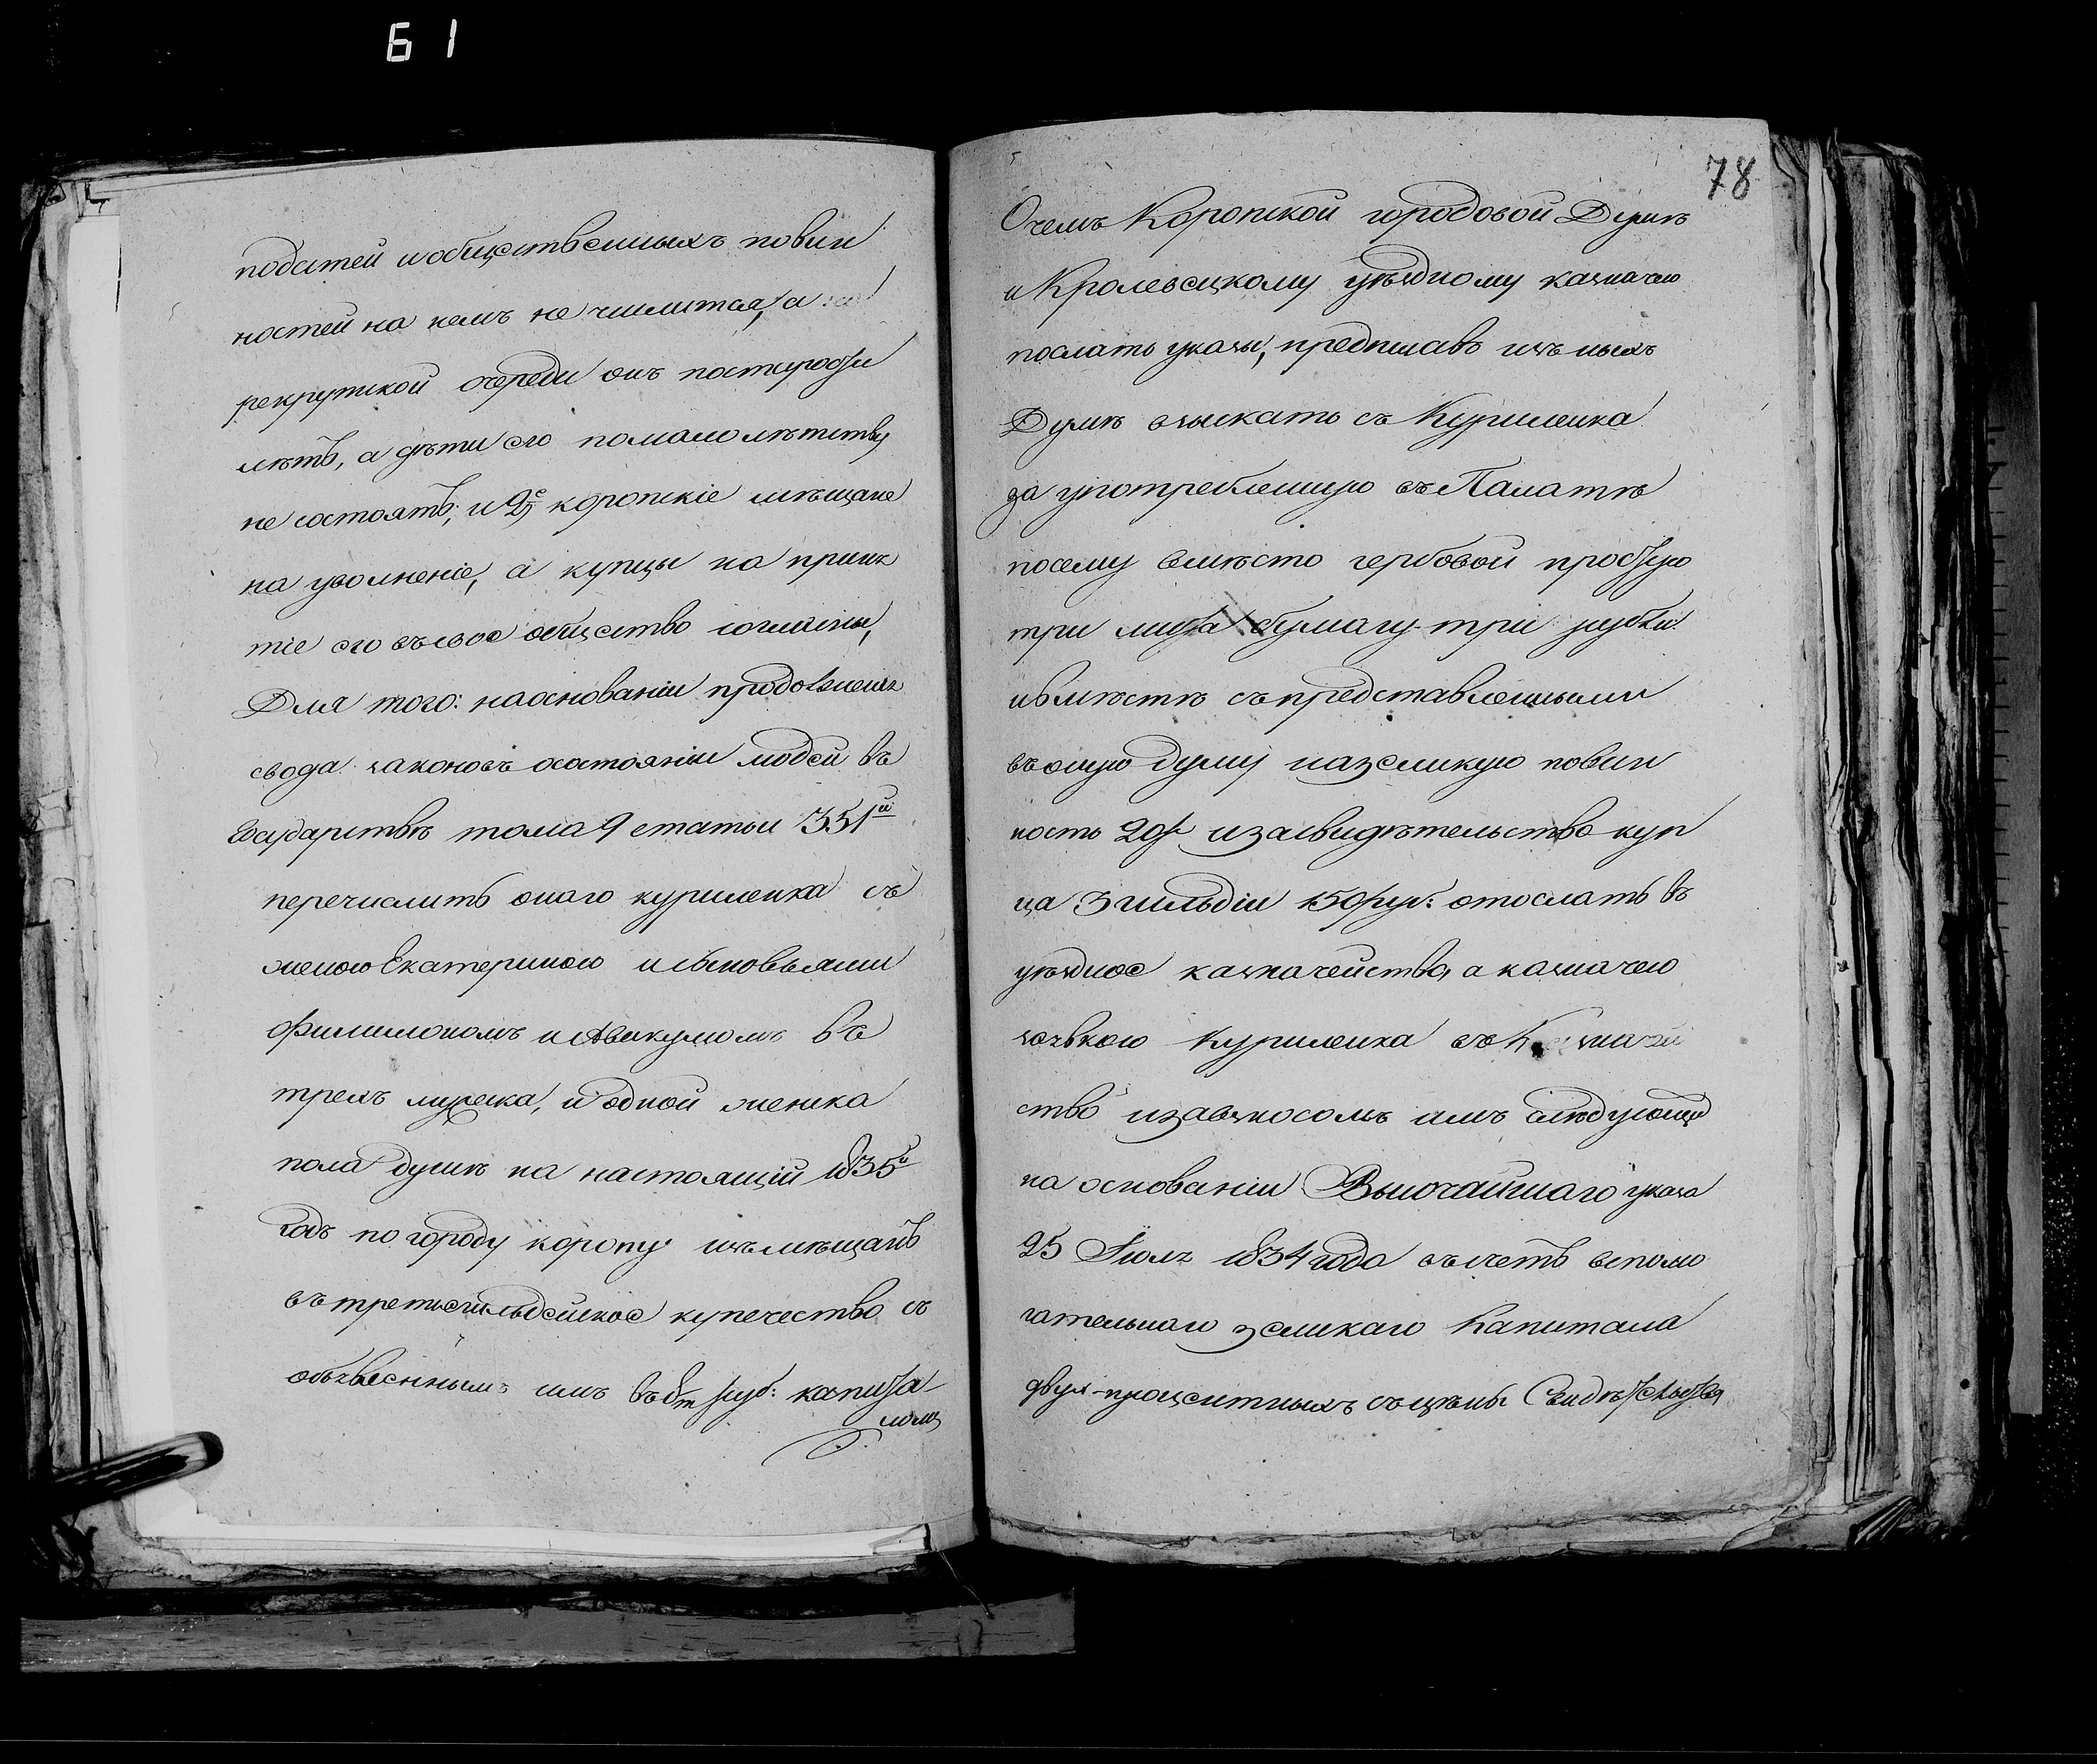 61
податей иобщественныхъ повин
ностей на немъ не числится, а
рекрутской очереди онъ постарости
лѣтъ, а дѣти его помалолѣтству
не состоятъ; и 2е коропскіе мѣщане
на уволненіе, а купцы на приня
тіе его въсвое общество согласны,
Для того: наосновании продолженія
свода законовъ осостояніи людей въ
Государствѣ тома 9 статьи 351й
перечислить онаго куриленка съ
женою Екатериною исыновьями
Филимономъ иАвакумомъ въ
трехъ мужеска, и одной женска
пола душѣ на настоящій 1835й
Годъ по городу коропу изъмѣщанъ
въ третьегильдейское купечество съ
объявленнымъ имъ въ 8т руб: капита-
ломъ
78
Очемъ Коропской городовой Думѣ
и Кролевецкому уѣздному казначею
послать указы, предписавъ изъ ныхъ
Думѣ взыскать съ Куриленка
за употребленную въ Палатѣ
посему вмѣсто гербовой простую
три листа бумагу три рубли
ивмѣстѣ съпредставленными
въоную думу наземскую повин
ность 20р изасвидѣтельство куп
ца 3 гильдіи 150 руб: отослать въ
уѣздное казначейство, а казначею
съявкою Куриленка въ Казначей
ство изавзносомъ имъ слѣдующ
на основаніи Высочайшаго указа
25 Іюля 1834 года въ счетъ вспомо
гательнаго земскаго капитала
двух-процентныхъ съцѣны Свидѣтельства